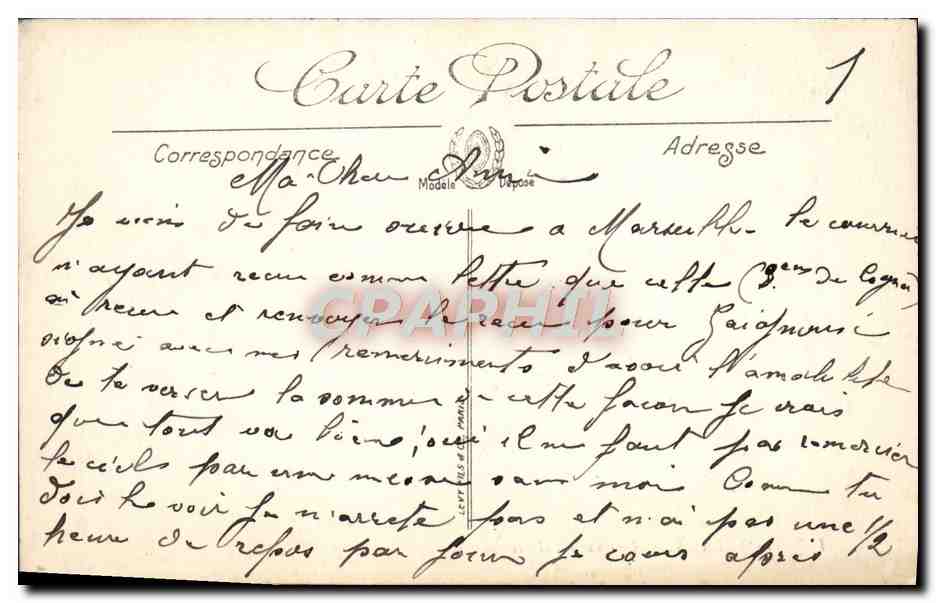 Carte Postale
1
Correspondance
Adresse
Modèle Déposé
Ma Chère Amie
Je viens de faire suivre a Marseille le courrier
n'ayant recu comme lettre que celle
recu et renvoyer le recu pour
signé avec mes remerciments d'avoir l'amabilité
de te verser la somme de cette façon je crois
que tout va bien, oui il ne faut pas remercier
le ciel par une messe sans moi Comme tu
dois le voir je n'arrete pas et n'ai pas une 1/2
heure de repos par jour je cours après
LEVY FILS & Cie PARIS
CPAPHIL